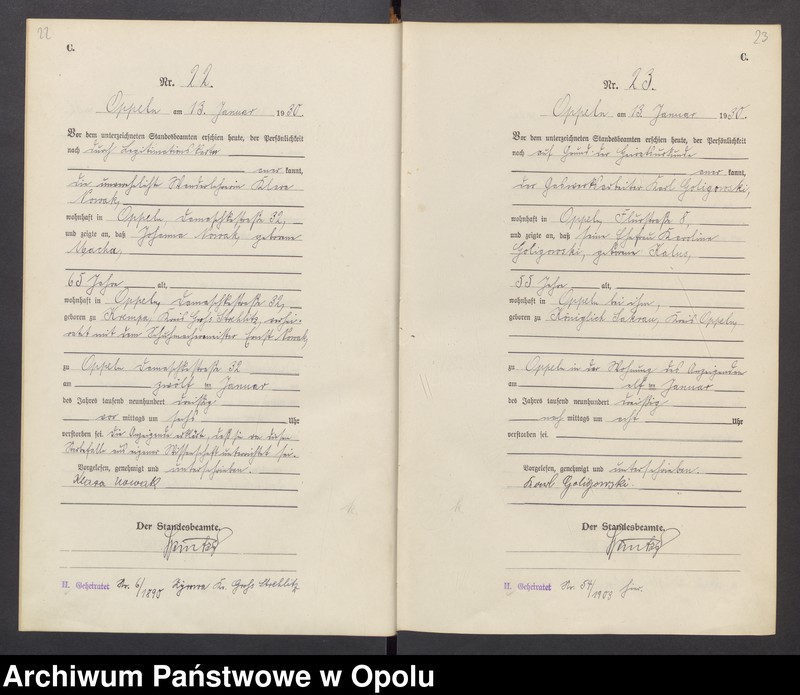 22
C.
Nr. 22.
Oppeln am 13. Januar 1930
Vor dem unterzeichneten Standesbeamten erschien heute, der Persönlichkeit
nach durch Legitimationskarte
aner kannt,
die unverehelichte Wanderlehrerin Klara
Nowak,
wohnhaft in Oppeln, Damaschkestraße 32,
und zeigte an, daß Johanna Nowak, geborene
Macha,
65 Jahre alt,
wohnhaft in Oppeln, Damaschkestraße 32,
geboren zu Krempa, Kreis Groß Strehlitz, verhei-
ratet mit dem Schuhmachermeister Ernst Nowak,
zu Oppeln Damaschkestraße 32
am zwölften Januar
des Jahres tausend neunhundert dreißig
vor mittags um sechs Uhr
verstorben sei. Die Anzeigende erklärte, daß sie von diesem
Sterbefalle aus eigener Wissenschaft unterrichtet sei.
Vorgelesen, genehmigt und unterschrieben.
Klara Nowak
Der Standesbeamte.
II. Geheiratet Nr. 6/1890 Kr. Groß Strehlitz
23
C.
Nr. 23.
Oppeln am 13. Januar 1930.
Vor dem unterzeichneten Standesbeamten erschien heute, der Persönlichkeit
nach auf Grund der Heiratsurkunde
aner kannt,
der Karl Goligowski,
wohnhaft in Oppeln, Flurstraße 8,
und zeigte an, daß seine Ehefrau Karoline
Goligowski, geborene Kalus,
55 Jahre alt,
wohnhaft in Oppeln bei ihm,
geboren zu Königlich Sakrau, Kreis Oppeln,
zu Oppeln in der Wohnung des Anzeigenden
am elften Januar
des Jahres tausend neunhundert dreißig
nach mittags um acht Uhr
verstorben sei.
Vorgelesen, genehmigt und unterschrieben.
Karl Goligowski.
Der Standesbeamte.
II. Geheiratet Nr. 54/1903 hier.
Archiwum Państwowe w Opolu